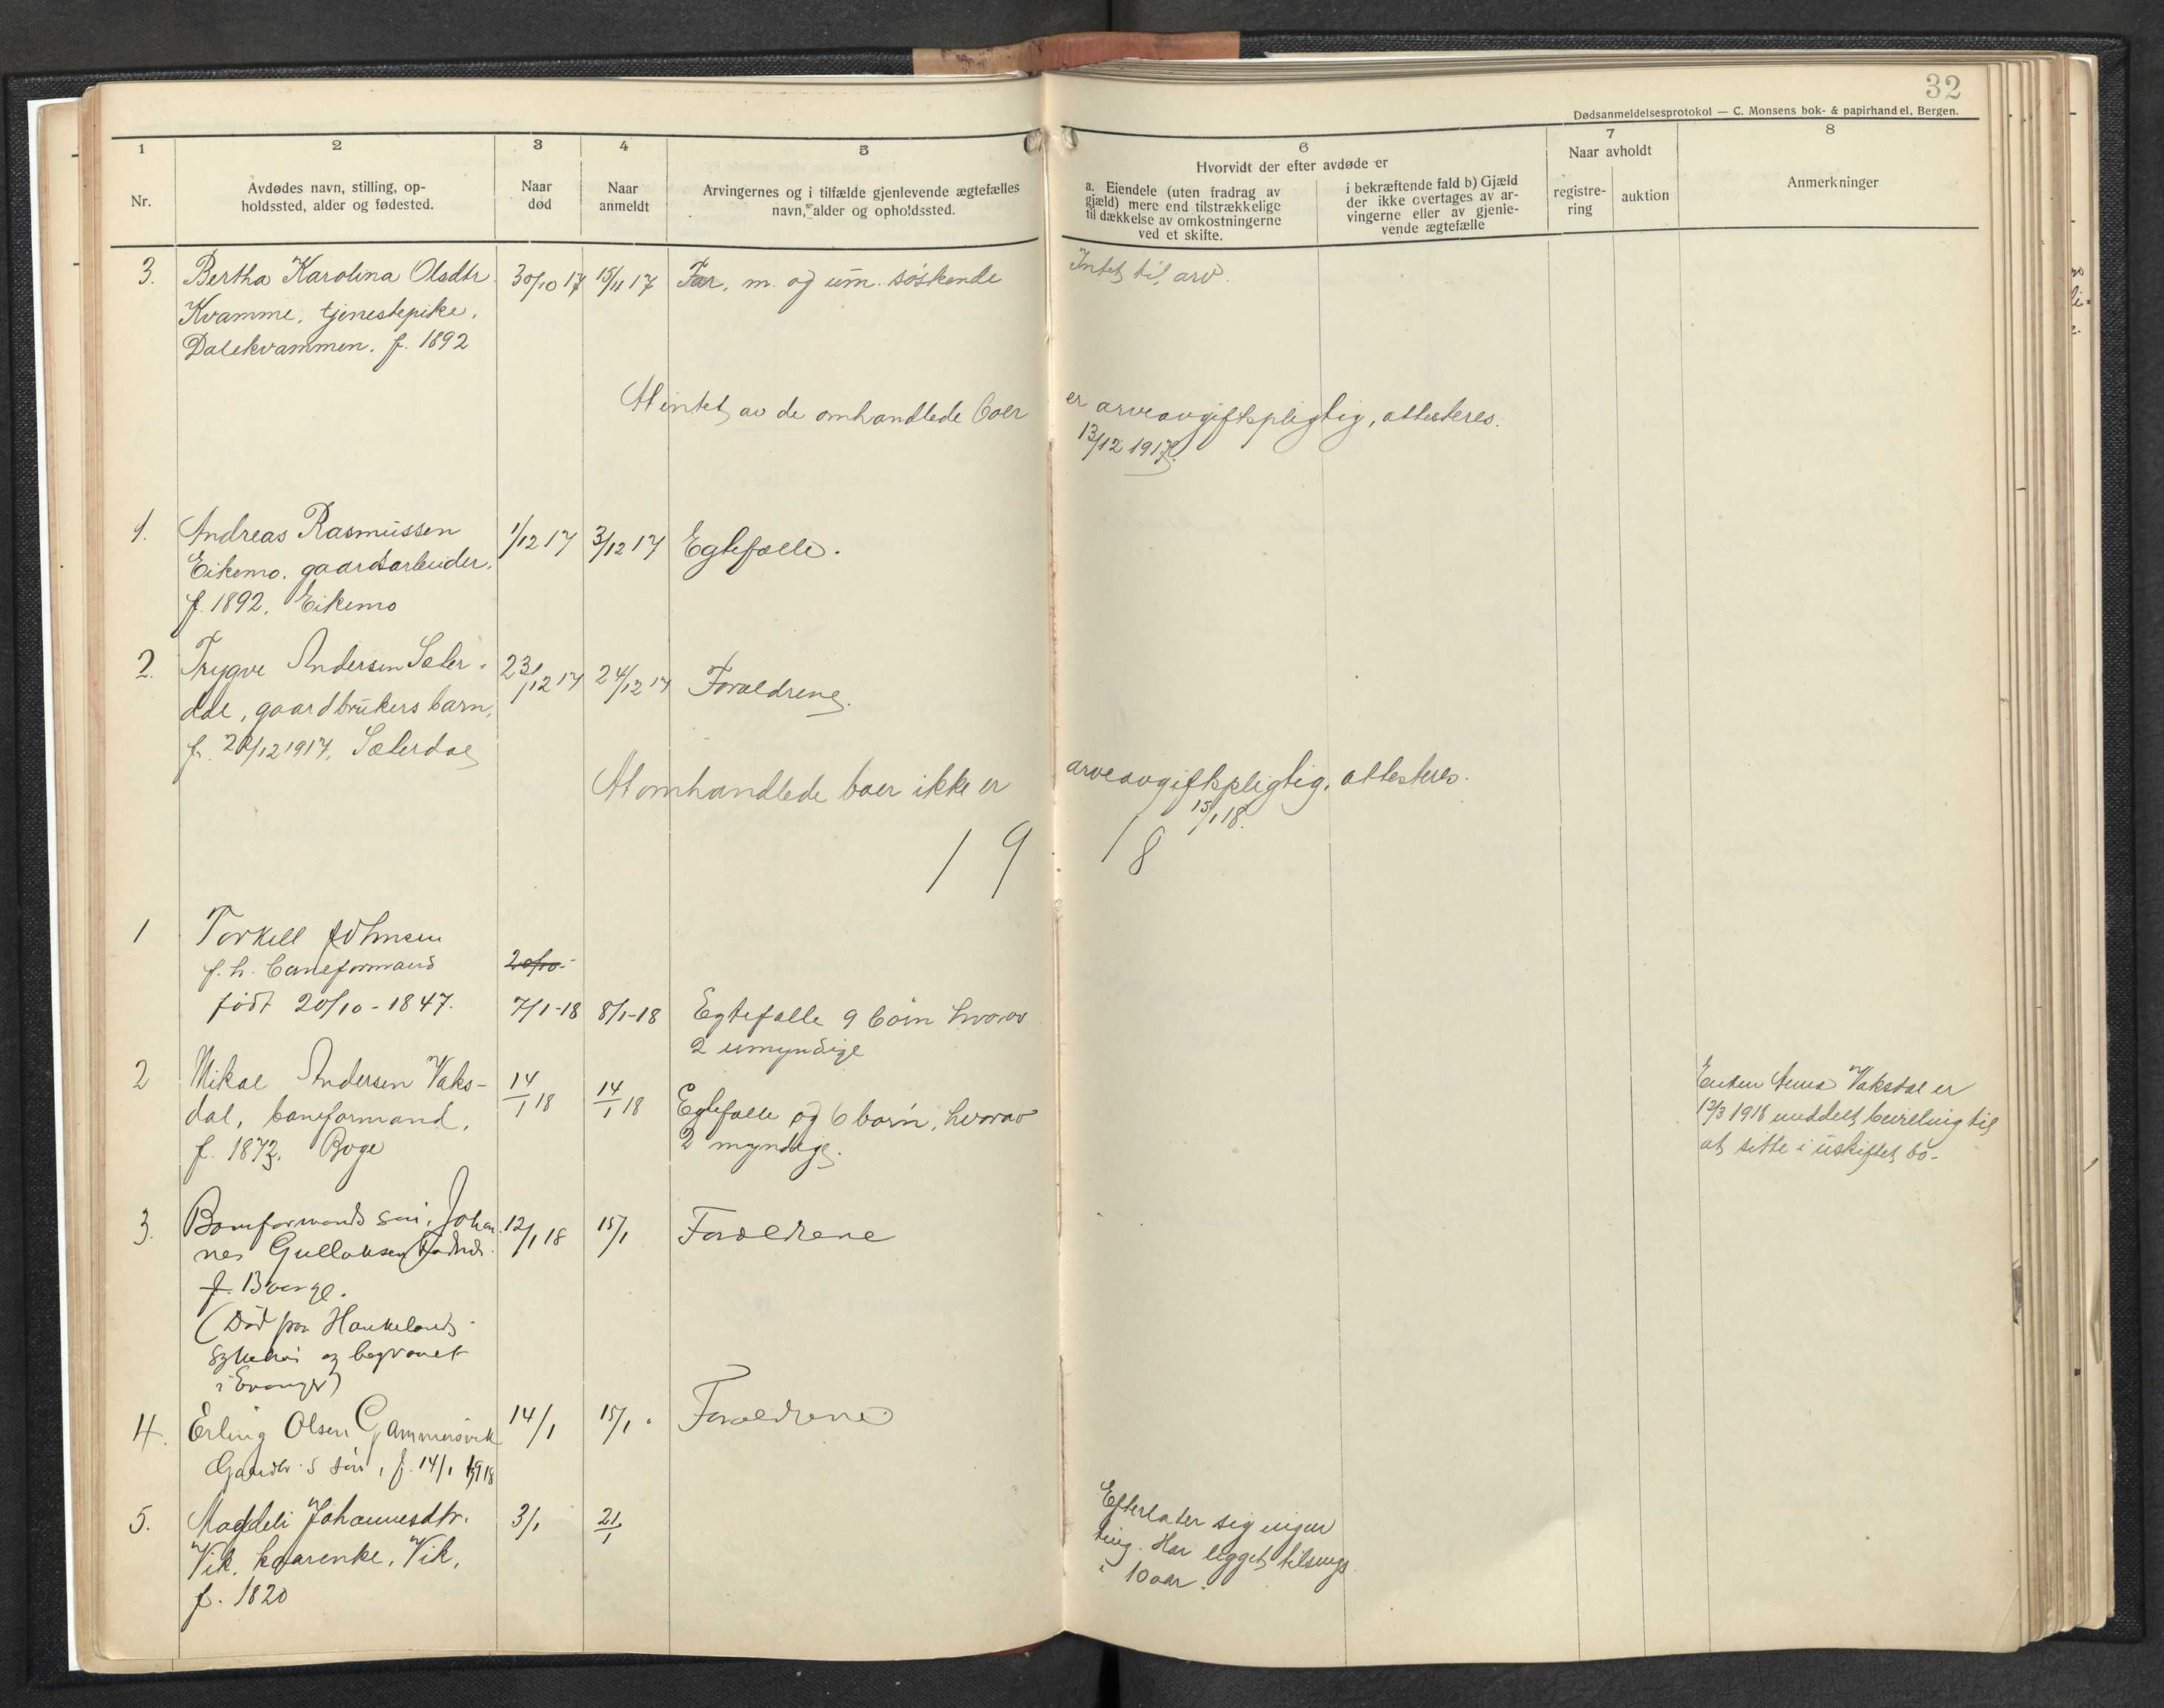 32
Dødsanmeldelsesprotokol — C. Monsens bok- & papirhandel, Bergen.
1
2
3
4
5
6
7
8
Nr.
Avdødes navn, stilling, op-
holdssted, alder og fødested.
Naar
død
Naar
anmeldt
Arvingernes og i tilfælde gjenlevende ægtefælles
navn, alder og opholdssted.
Hvorvidt der efter avdøde er
a. Eiendele (uten fradrag av
gjæld) mere end tilstrækkelige
til dækkelse av omkostningerne
ved et skifte.
i bekræftende fald b) Gjæld
der ikke overtages av ar-
vingerne eller av gjenle-
vende ægtefælle
Naar avholdt
registre-
ring
auktion
Anmerkninger
3. Bertha Karolina Olsdtr. 30/10 17 15/11 17 Far, m. og um. søskende Intet til arv.
Kvamme, tjenestepike,
Dalekvammen. f. 1892
At intet av de omhandlede boer er arveavgiftspligtig, attesteres.
13/12 1917.
1. Andreas Rasmussen 1/12 17 3/12 17 Egtefælle.
Eikemo. gaardsarbeider.
f. 1892. Eikemo
2. Trygve Andersen Sæter- 23/12 17 24/12 17 Forældrene.
dal, gaardbrukers barn,
f. /12 1917. Sæterdal
At omhandlede boer ikke er arveavgiftspligtig, attesteres.
15/1 18.
1 9 1 8
1 Torkell Johnsen
f. h. baneformand 20/10-
født 20/10-1847. 7/1-18 8/1-18 Egtefælle 9 børn hvorav
2 umyndige
2 Mikal Andersen Vaks- 14/1 18 14/1 18 Egtefælle og 6 barn, hvorav
dal, baneformand, 2 myndige.
f. 1873. Boge
Enken Anna Vaksdal er
12/3 1918 meddelt bevilling til
at sitte i uskiftet bo-
3. Baneformands søn, Johan- 12/1 18 15/1 Forældrene
nes Gullaksen
f. Bverge.
(Død paa Haukelands
sykehus og begravet
i Evanger)
4. Erling Olsen Gammersvik 14/1 15/1. Forældrene
Gaardbr.s søn, f. 14/1 1918
5. Magdeli Johannesdtr. 3/1 21/1
Vik, kaarenke, Vik,
f. 1820
Efterlater sig ingen
ting. Har ligget tilsengs
i 10 aar.